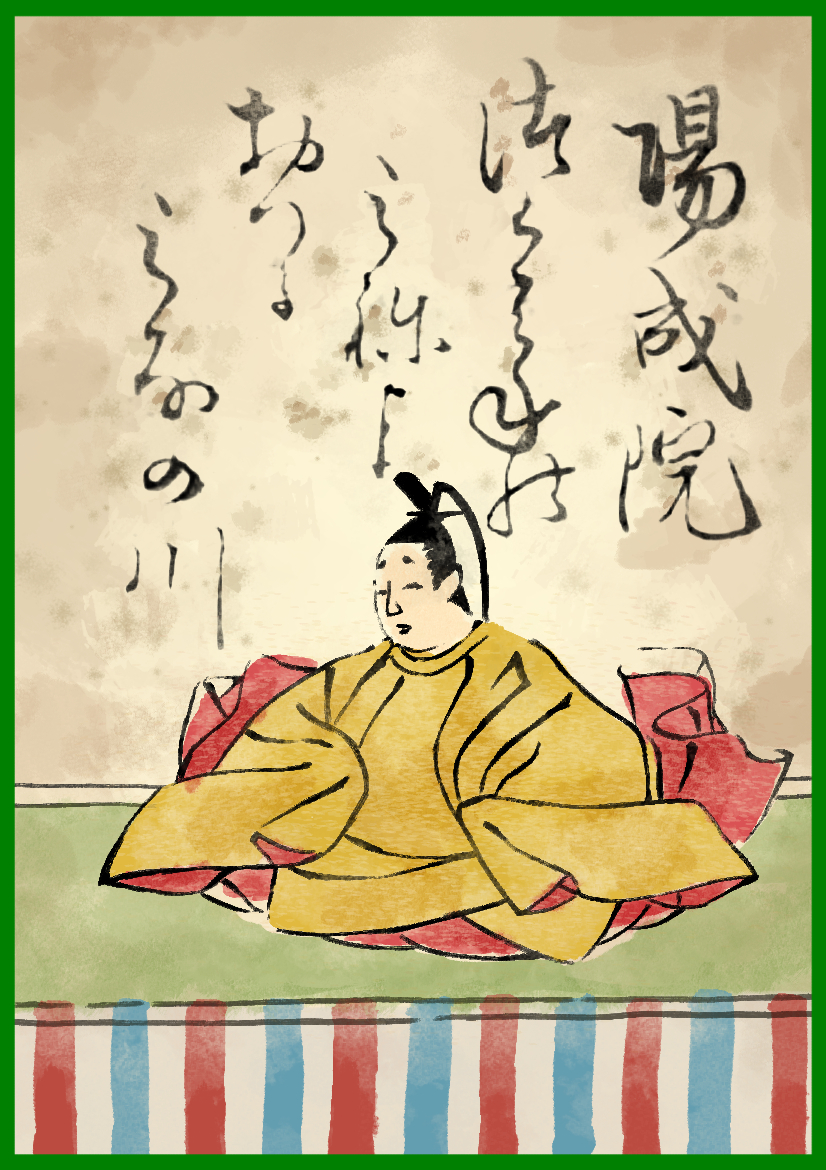 陽成院
つくばねの
みねより
おつる
みなの川